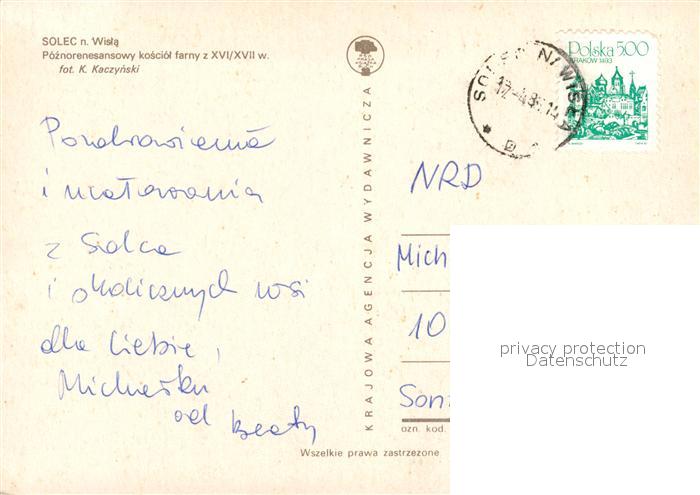 SOLEC n. Wisłą
Późnorenesansowy kościół farny z XVI/XVII w.
fot. K. Kaczyński
Pozdrowienia
i ucałowania
z Solca
i okolicznych wsi
dla Ciebie,
Michałku
od Beaty
KRAJOWA AGENCJA WYDAWNICZA
Polska 500
KRAKÓW 1493
SOLEC N/WISŁĄ
NRD
Mich
10
Son
ozn. kod.
Wszelkie prawa zastrzeżone
privacy protection
Datenschutz